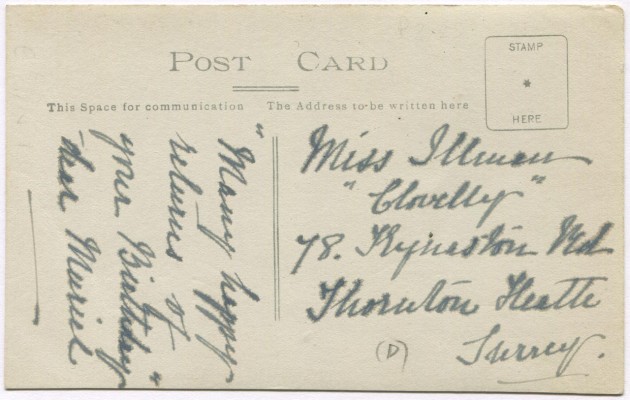 POST CARD
This Space for communication
The Address to be written here
STAMP
HERE
"Many happy
returns of
your Birthday"
dear Muriel
Miss Illman
"Clovelly"
78. Kynaston Rd
Thornton Heath
Surrey.
(D)